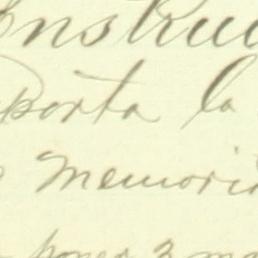 Instruc
porta la
Memori
poner 3 ma